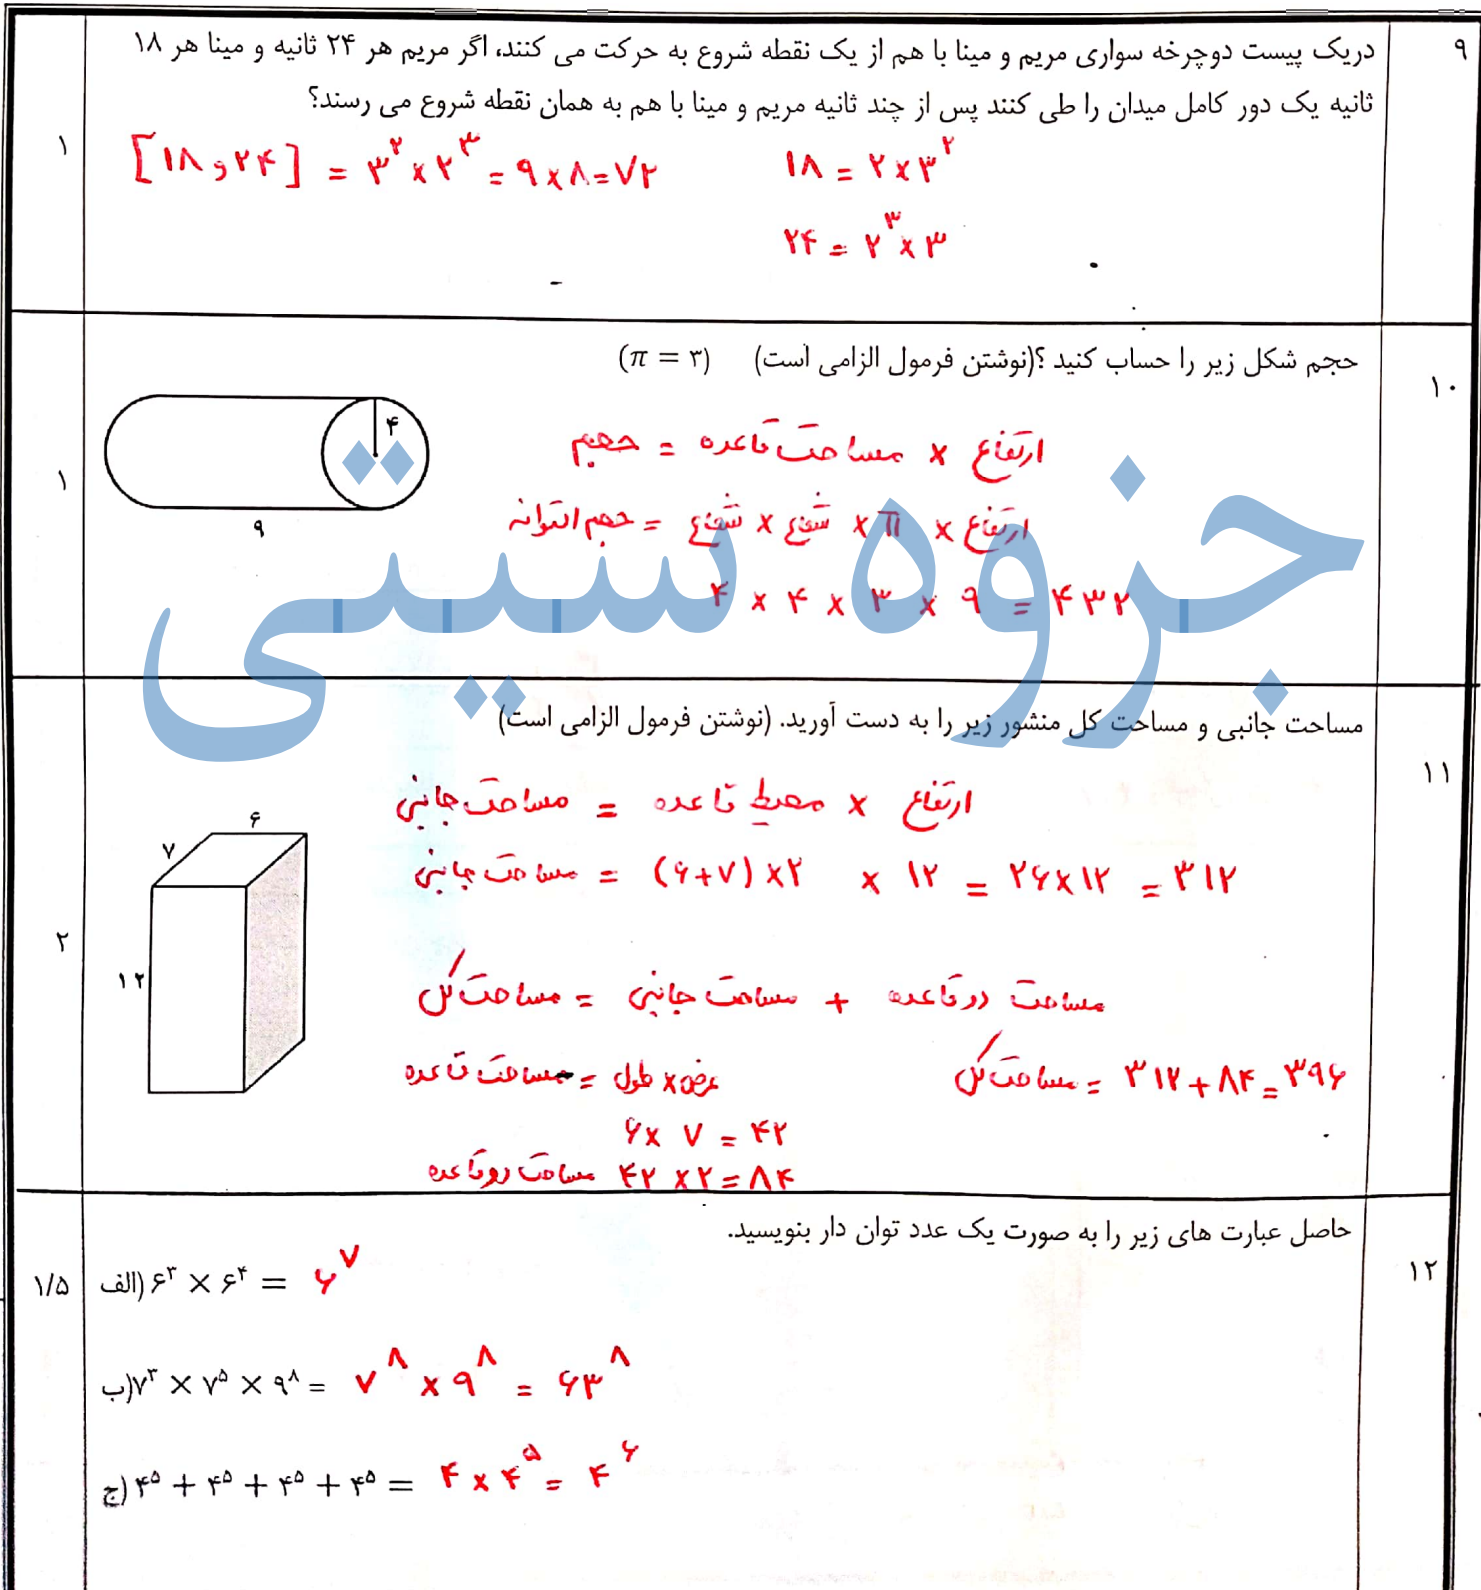 ۹
دریک پیست دوچرخه سواری مریم و مینا با هم از یک نقطه شروع به حرکت می کنند، اگر مریم هر ۲۴ ثانیه و مینا هر ۱۸
ثانیه یک دور کامل میدان را طی کنند پس از چند ثانیه مریم و مینا با هم به همان نقطه شروع می رسند؟
۱
[۱۸ و ۲۴] = ۳^۲ × ۲^۳ = ۹ × ۸ = ۷۲
۱۸ = ۲ × ۳^۲
۲۴ = ۲^۳ × ۳
۱۰
حجم شکل زیر را حساب کنید ؟(نوشتن فرمول الزامی است) (π = ۳)
۱
۴
۹
ارتفاع × مساحت قاعده = حجم
ارتفاع × π × شعاع × شعاع = حجم استوانه
۴ × ۴ × ۳ × ۹ = ۴۳۲
جزوه سیتی
۱۱
مساحت جانبی و مساحت کل منشور زیر را به دست آورید. (نوشتن فرمول الزامی است)
۲
۶
۷
۱۲
ارتفاع × محیط قاعده = مساحت جانبی
مساحت جانبی = (۶+۷)×۲ × ۱۲ = ۲۶×۱۲ = ۳۱۲
مساحت دو قاعده + مساحت جانبی = مساحت کل
مساحت کل = ۳۱۲ + ۸۴ = ۳۹۶
عرض × طول = مساحت قاعده
۶ × ۷ = ۴۲
مساحت دو قاعده ۴۲ × ۲ = ۸۴
۱۲
حاصل عبارت های زیر را به صورت یک عدد توان دار بنویسید.
۱/۵
الف) ۶^۳ × ۶^۴ = ۶^۷
ب) ۷^۳ × ۷^۵ × ۹^۸ = ۷^۸ × ۹^۸ = ۶۳^۸
ج) ۴^۵ + ۴^۵ + ۴^۵ + ۴^۵ = ۴ × ۴^۵ = ۴^۶